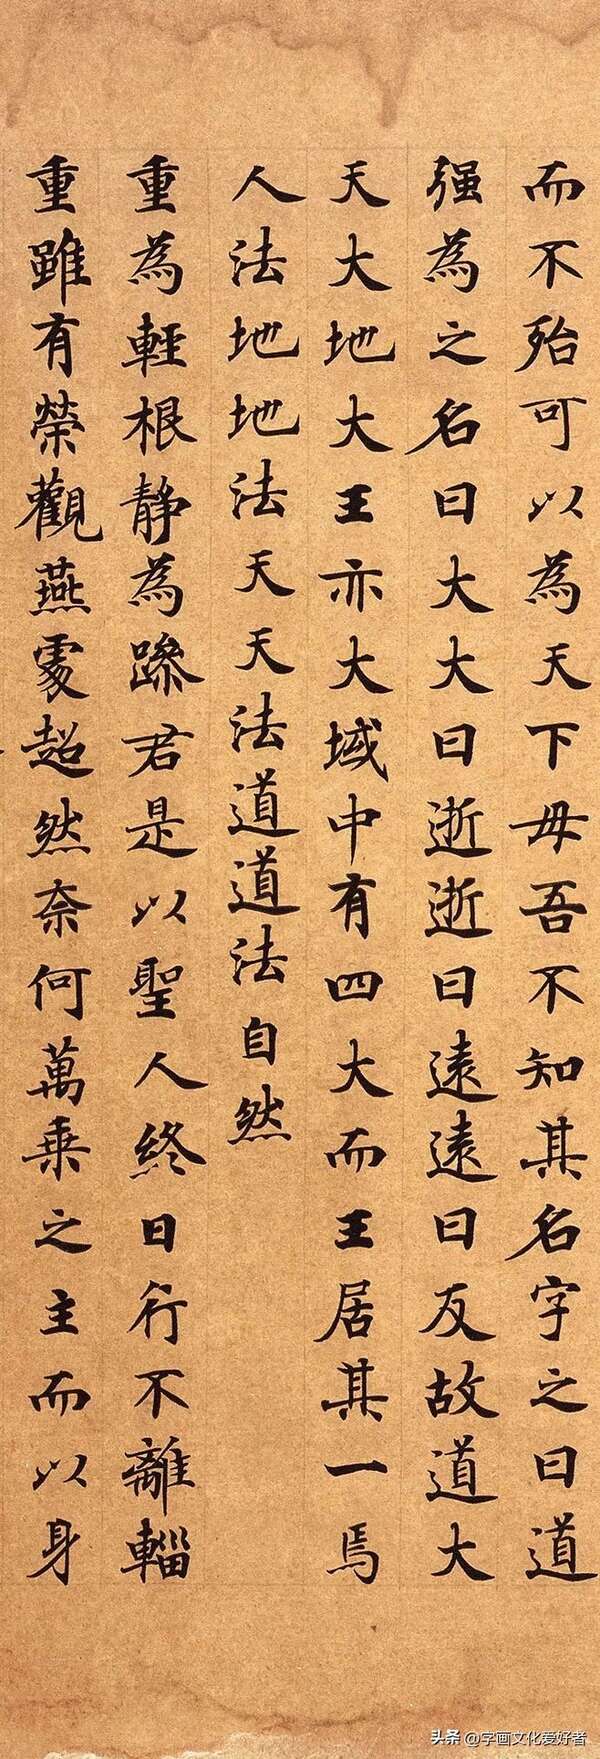 而不殆可以為天下母吾不知其名字之曰道
强為之名曰大大曰逝逝曰遠遠曰反故道大
天大地大王亦大域中有四大而王居其一焉
人法地地法天天法道道法自然
重為輕根静為躁君是以聖人終日行不離輜
重雖有榮觀燕處超然奈何萬乗之主而以身
头条 @字画文化爱好者